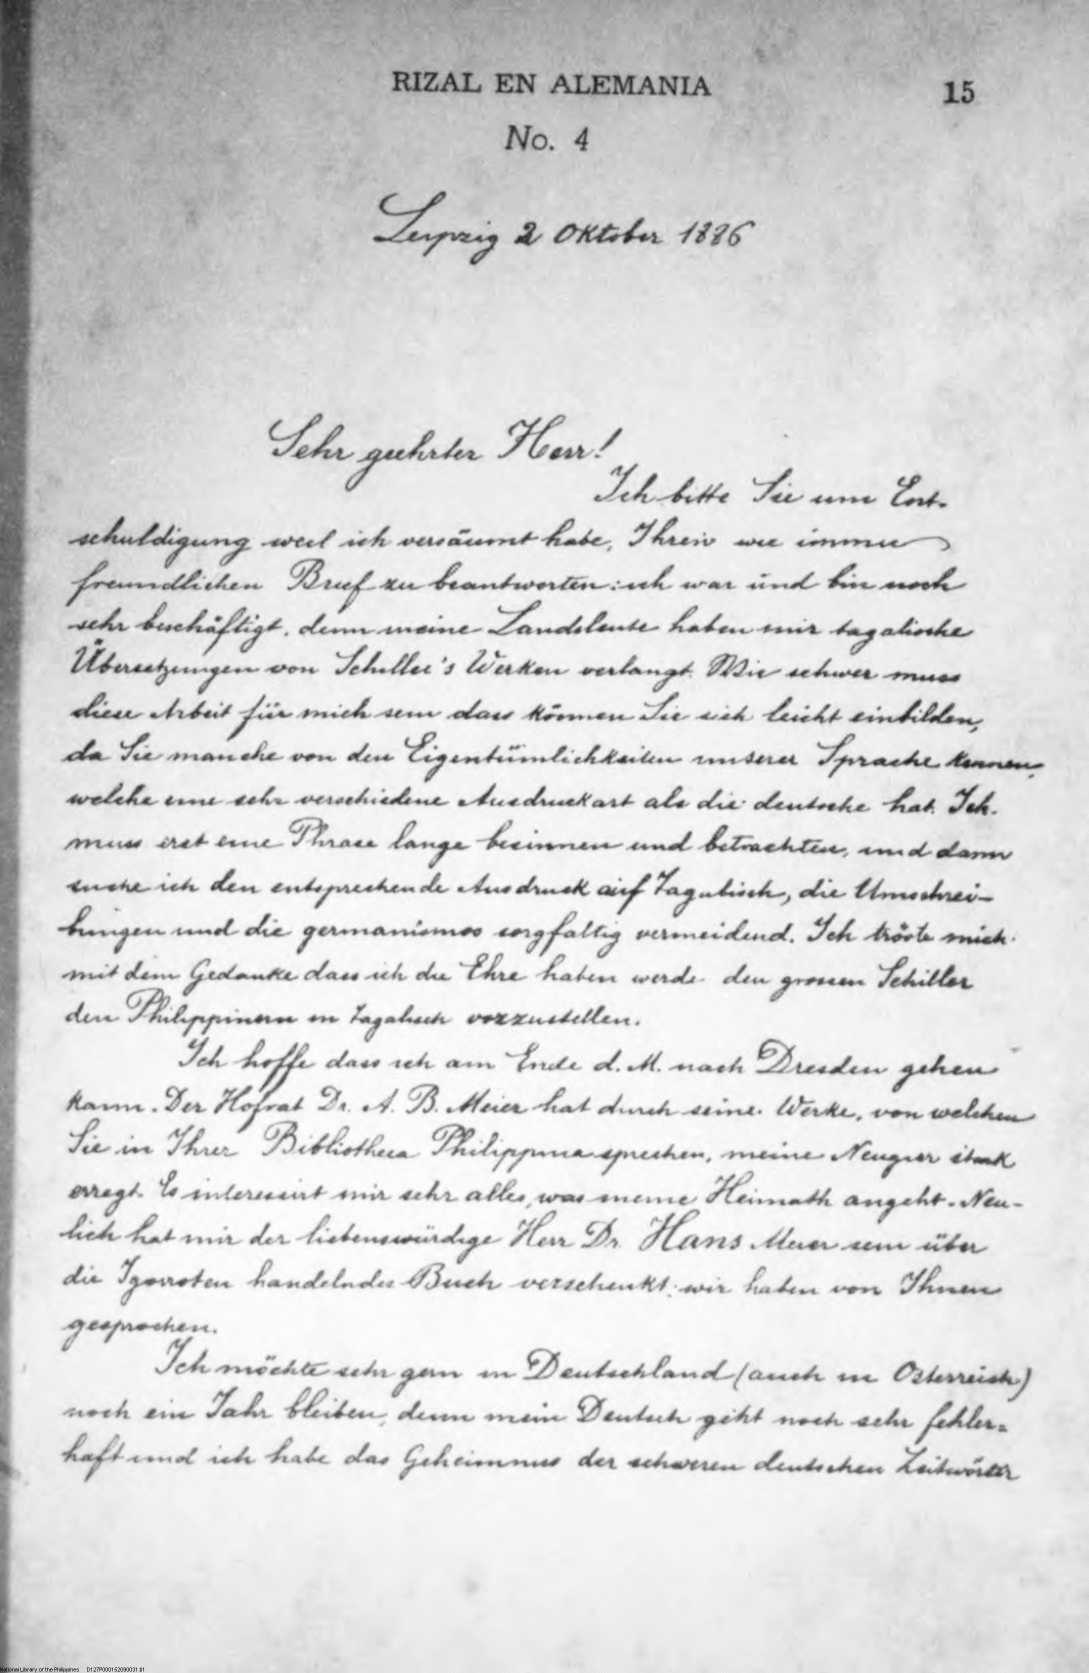 RIZAL EN ALEMANIA
15
No. 4
Leipzig 2 Oktober 1886
Sehr geehrter Herr!
Ich bitte Sie um Ent-
schuldigung weil ich versäumt habe, Ihren wie immer
freundlichen Brief zu beantworten: ich war und bin noch
sehr beschäftigt, denn meine Landsleute haben mir tagalische
Übersetzungen von Schiller's Werken verlangt. Wie schwer muss
diese Arbeit für mich sein dass können Sie sich leicht einbilden,
da Sie manche von den Eigentümlichkeiten unserer Sprache kennen,
welche eine sehr verschiedene Ausdruckart als die deutsche hat. Ich
muss erst eine Phrase lange besinnen und betrachten, und dann
suche ich den entsprechende Ausdruck auf Tagalisch, die Umschrei-
bungen und die germanismos sorgfaltig vermeidend. Ich tröste mich
mit dem Gedanke dass ich die Ehre haben werde den grossen Schiller
den Philippinern in Tagalisch vorzustellen.
Ich hoffe dass ich am Ende d. M. nach Dresden gehen
kann. Der Hofrat Dr. A. B. Meier hat durch seine Werke, von welchen
Sie in Ihrer Bibliotheca Philippina sprechen, meine Neugier stark
erregt. Es interessirt mir sehr alles, was meine Heimath angeht. Neu-
lich hat mir der liebenswürdige Herr Dr. Hans Meier sein über
die Igorroten handelndes Buch verschenkt; wir haben von Ihnen
gesprochen.
Ich möchte sehr gern in Deutschland (auch in Osterreich)
noch ein Jahr bleiben, denn mein Deutsch geht noch sehr fehler-
haft und ich habe das Geheimniss der schweren deutschen Zeitwörter
National Library of the Philippines